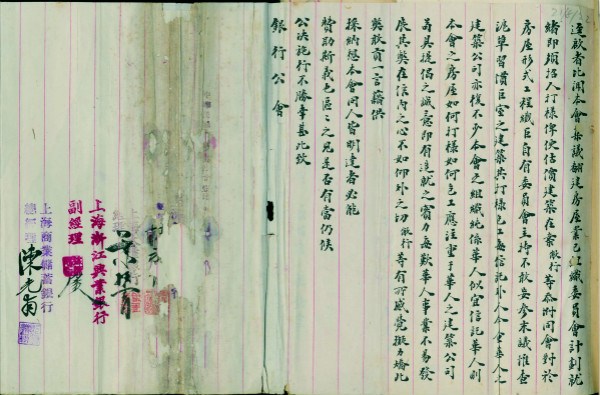 逕啟者比聞本會集議翻建房屋業已組織委員會計劃就
緒即須招人打樣俾便估價建築在案敝行等忝附同會對於
房屋形式工程纖巨自有委員會主持不敢妄參末議惟查
滬埠習慣巨室之建築與打樣包工每信託外人今查華人之
建築公司亦復不少本會之組織純係華人似宜信託華人則
本會之房屋如何打樣如何包工應注重于華人之建築公司
苟具提倡之誠意即有造就之實力每歎華人事業不易發
展其弊在信內之心不如仰外之切敝行等有所感覺擬力矯此
弊敢貢一言藉供
採納想本會同人皆明達者必能
贊助斯義也區區之見是否有當仍候
公決施行不勝幸甚此致
銀行公會
上海浙江興業銀行
副經理
上海商業儲蓄銀行
總經理 陳光甫